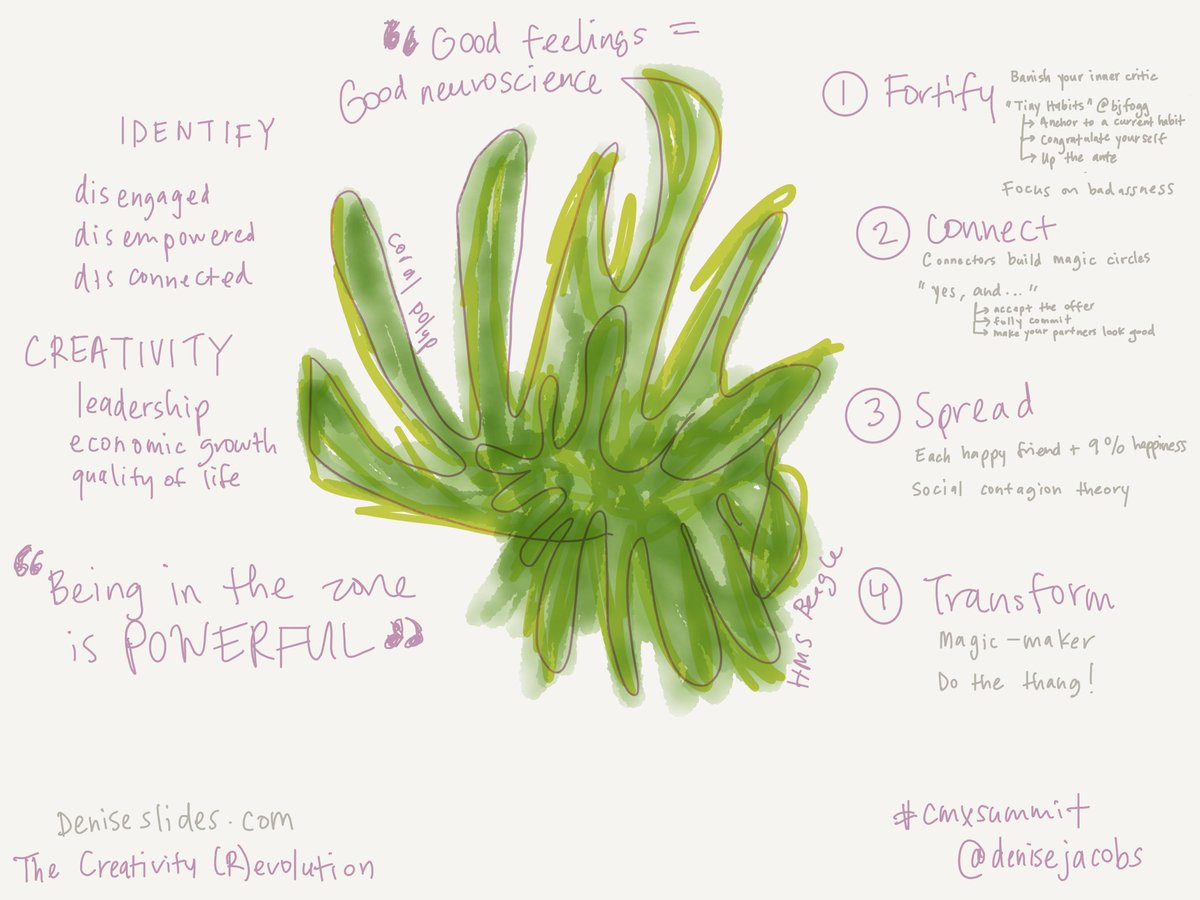 “Good feelings =
Good neuroscience
IDENTIFY
disengaged
disempowered
disconnected
CREATIVITY
leadership
economic growth
quality of life
“Being in the zone
is POWERFUL”
coral polyp
HMS Beagle
1 Fortify
Banish your inner critic
"Tiny Habits" @bjfogg
Anchor to a current habit
Congratulate yourself
Up the ante
Focus on badassness
2 Connect
Connectors build magic circles
"yes, and..."
accept the offer
fully commit
make your partners look good
3 Spread
Each happy friend + 9% happiness
Social contagion theory
4 Transform
Magic-maker
Do the thang!
Deniseslides.com
The Creativity (R)evolution
#cmxsummit
@denisejacobs